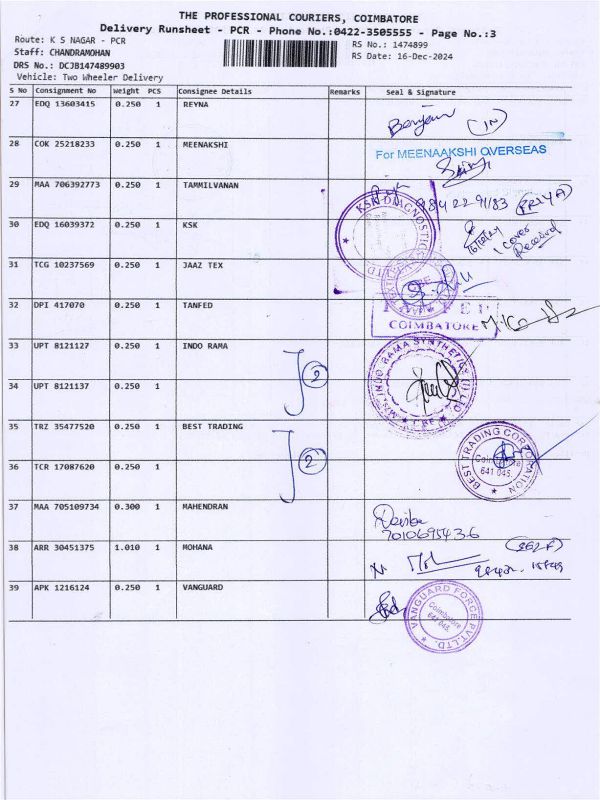 THE PROFESSIONAL COURIERS, COIMBATORE
Delivery Runsheet - PCR - Phone No.:0422-3505555 - Page No.:3
Route: K S NAGAR - PCR
RS No.: 1474899
Staff: CHANDRAMOHAN
RS Date: 16-Dec-2024
DRS No.: DCJB147489903
Vehicle: Two Wheeler Delivery
S No Consignment No Weight PCS Consignee Details Remarks Seal & Signature
27 EDQ 13603415 0.250 1 REYNA
(IN)
28 COK 25218233 0.250 1 MEENAKSHI
For MEENAAKSHI OVERSEAS
29 MAA 706392773 0.250 1 TAMMILVANAN
984 22 91183 (PRIYA)
30 EDQ 16039372 0.250 1 KSK
KSK DIAGNOSTICS
1 Cover
Received
31 TCG 10237569 0.250 1 JAAZ TEX
32 DPI 417070 0.250 1 TANFED
COIMBATORE
33 UPT 8121127 0.250 1 INDO RAMA
2
M/s. INDO RAMA SYNTHETICS (I) LTD.
CBE
34 UPT 8121137 0.250 1
35 TRZ 35477520 0.250 1 BEST TRADING
2
BEST TRADING CORPORATION
Coimbatore
641 045.
36 TCR 17087620 0.250 1
37 MAA 705109734 0.300 1 MAHENDRAN
7010695436
38 ARR 30451375 1.010 1 MOHANA
39 APK 1216124 0.250 1 VANGUARD
VANGUARD FORCE PVT.LTD.
Coimbatore
641 045.